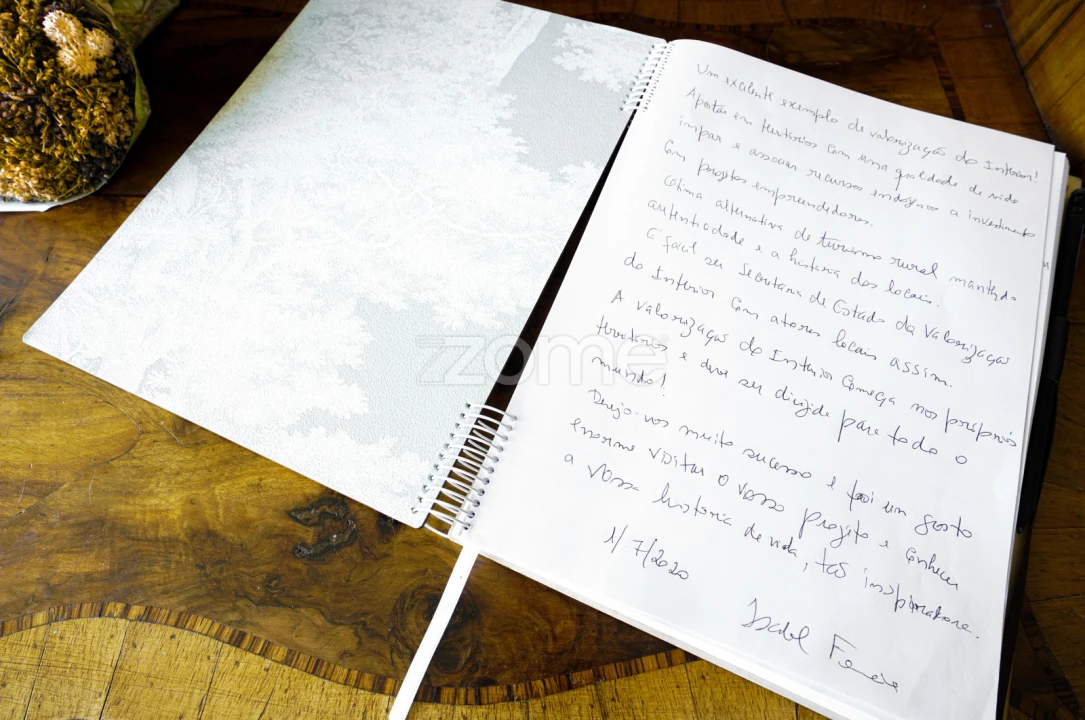 Um excelente exemplo de valorização do Interior!
Apostar em territórios com uma qualidade de vida
impar e associar recursos endógenos a investimento
com projetos empreendedores.
Otima alternativa de turismo rural mantendo
autenticidade e a história dos locais.
É facil ser Secretaria de Estado da Valorização
do Interior com atores locais assim.
A valorização do Interior começa nos próprios
territorios e deve ser dirigida para todo o
mundo!
Desejo-vos muito sucesso e foi um gosto
enorme visitar o vosso projeto e conhecer
a vossa história de vida, tão inspiradora.
1/7/2020
Isabel Ferreira
zome